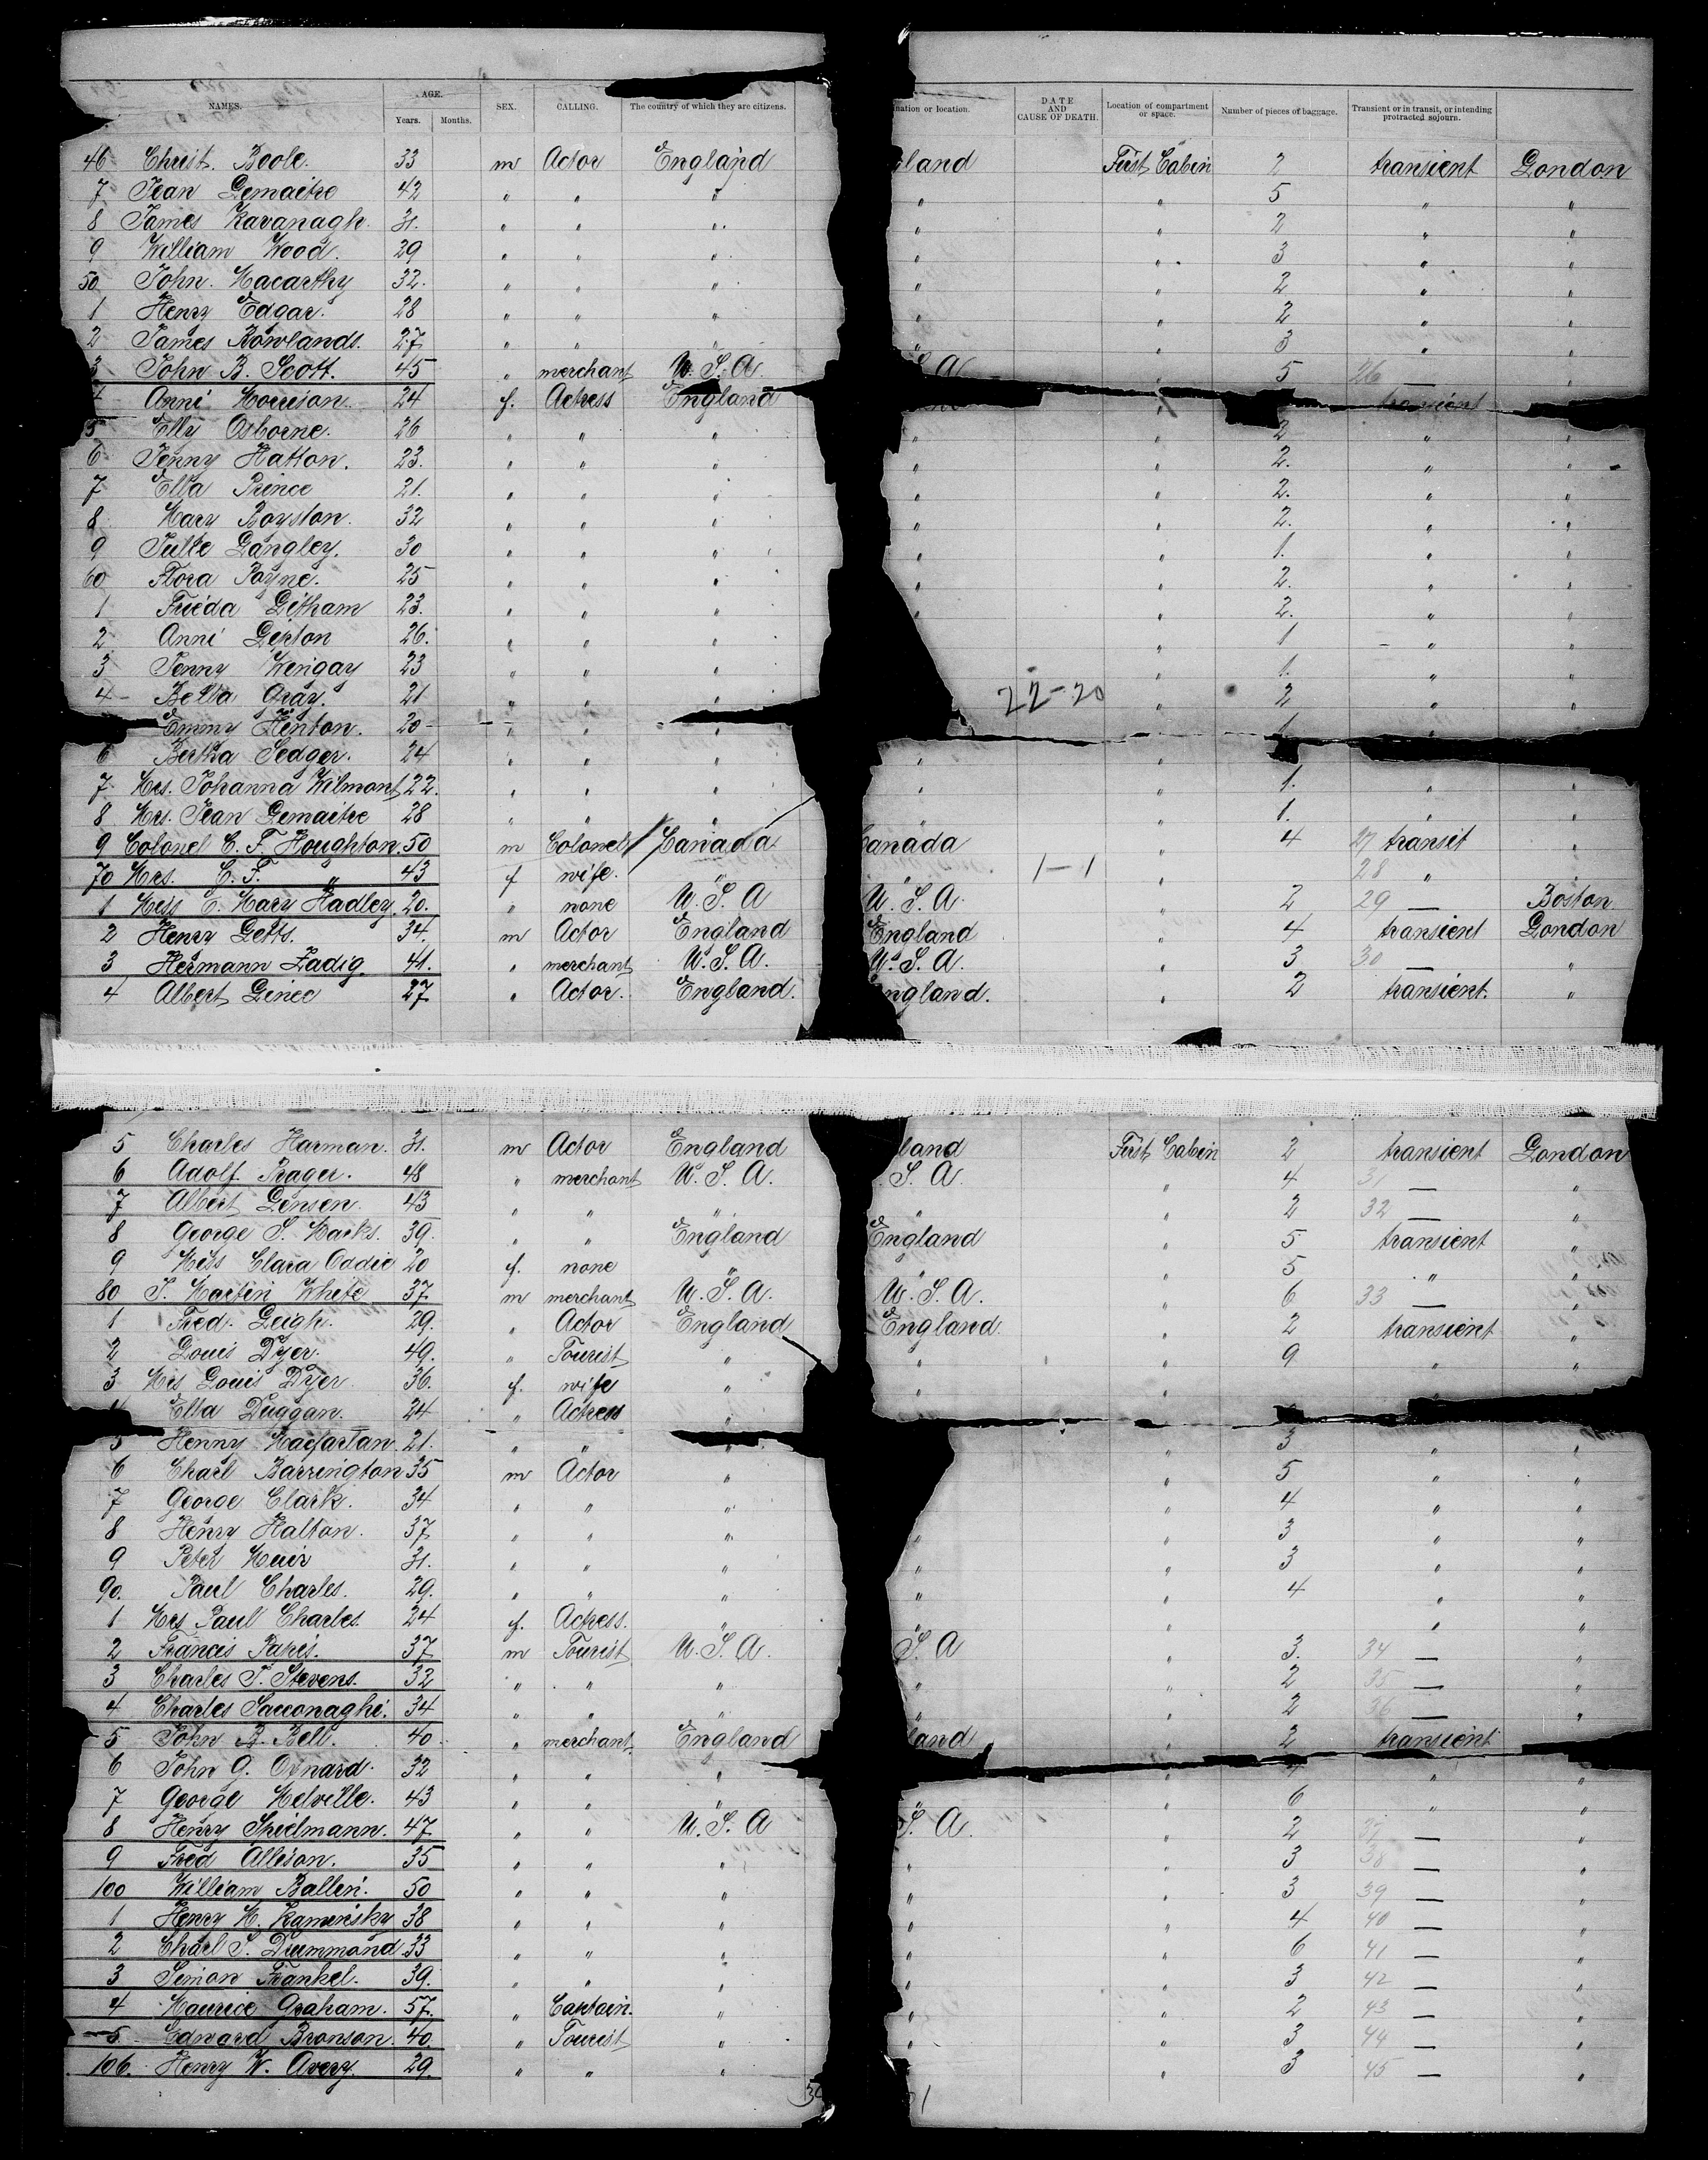 NAMES. AGE. Years. Months. SEX. CALLING. The country of which they are citizens. nation or location. DATE AND CAUSE OF DEATH. Location of compartment or space. Number of pieces of baggage. Transient or in transit, or intending protracted sojourn.
46 Christ. Boole. 33 m Actor England land First Cabin 2 transient London
7 Jean Lemaitre 42 " " " " " 5 " "
8 James Kavanagh. 31. " " " " " 2 " "
9 William Wood. 29 " " " " " 3 " "
50 John. Macarthy 32. " " " " " 2 " "
1 Henry Edgar. 28 " " " " " 2 " "
2 James Rowlands. 27 " " " " " 3 " "
3 John B. Scott. 45 " merchant U. S. A S A " 5 26 — "
4 Anni Morrison. 24 f. Actress England " transient
5 Elly Osborne. 26 " " " " " 2 " "
6 Jenny Hatton. 23. " " " " " 2. " "
7 Ella Prince 21. " " " " " 2. " "
8 Mary Royston. 32 " " " " " 2. " "
9 Julie Langley. 30 " " " " " 1. " "
60 Flora Payne. 25 " " " " " 2. " "
1 Frieda Litham 23. " " " " " 2. " "
2 Anni Lepton 26. " " " " 1 " "
3 Jenny Wengay 23 " " " " 1. " "
4 Bella Gray. 21 " " " 22-20 " 2 " "
Emmy Henton. 20 " " " 1 "
6 Bertha Sedger. 24 " " " " " "
7 Mrs. Johanna Wilmont 22. " " " " " 1. " "
8 Mrs. Jean Lemaitre 28 " " " " " 1. " "
9 Colonel C. F. Houghton. 50 m Colonel Canada Canada " 4 27 transit "
70 Mrs. C. F. " 43 f wife. " " 1-1 " 28 " "
1 Miss C. Mary Hadley. 20. " none U. S. A U. S. A. " 2 29 — Boston
2 Henry Letts. 34. m Actor England England " 4 transient London
3 Hermann Zadig 41. " merchant U. S. A. U. S. A. " 3 30 — "
4 Albert Liniee 27 " Actor. England. ngland. " 2 transient. "
5 Charles Harman. 31. m Actor England land First Cabin 2 transient London
6 Adolf Prager. 48 " merchant U. S. A. S. A. " 4 31 — "
7 Albert Jensen. 43 " " " " " 2 32 — "
8 George S. Marks. 39. " " England England " 5 transient "
9 Miss Clara Oddie 20 f. none " " " 5 " "
80 J. Martin White 37 m merchant U. S. A. U. S. A. " 6 33 — "
1 Fred. Leigh. 29. " Actor England England. " 2 transient "
2 Louis Dyer. 49. " Tourist " " " 9 " "
3 Mrs Louis Dyer 36. f. wife " " " " "
4 Ella Duggan. 24 " Actress "
5 Henny Macfarlan. 21. " " " " 3 " "
6 Charl Barrington 35 m Actor " " 5 " "
7 George Clark. 34 " " " " 4 " "
8 Henry Halton. 37 " " " " " 3 " "
9 Peter Muir 31. " " " " " 3 " "
90. Paul Charles. 29. " " " " " 4 " "
1 Mrs Paul Charles. 24 f. Actress. " " " " "
2 Francis Paris. 37 m Tourist U. S. A. S. A " 3. 34 — "
3 Charles T. Stevens. 32 " " " " " 2 35 — "
4 Charles Sacconaghi. 34 " " " " " 2 36 — "
5 John B. Bell. 40 " merchant. England land " 2 transient "
6 John G. Oxnard. 32 " " " " " "
7 George Melville. 43 " " " " " 6 " "
8 Henry Spielmann. 47 " " U. S. A S. A. " 2 37 — "
9 Fred Allison. 35 " " " " " 3 38 — "
100 William Ballin. 50 " " " " " 3 39 — "
1 Henry H. Kaminsky 38 " " " " " 4 40 — "
2 Charl S. Drummond 33 " " " " " 6 41 — "
3 Simon Frankel. 39. " " " " " 3 42 — "
4 Maurice Graham. 57. " Captain. " " " 2 43 — "
5 Edward Bronson. 40. " Tourist " " " 3 44 — "
106. Henry W. Avery. 29. " " " " 3 45 — "